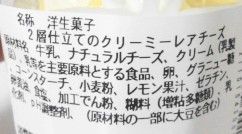 名称 洋生菓子
2層仕立てのクリーミーレアチーズ
原材料名 牛乳、ナチュラルチーズ、クリーム(乳製
品)、乳等を主要原料とする食品、卵、グラニュー糖
、コーンスターチ、小麦粉、レモン果汁、ゼラチン、
食塩、加工でん粉、糊料(増粘多糖類)、
pH調整剤、(原材料の一部に大豆を含む)